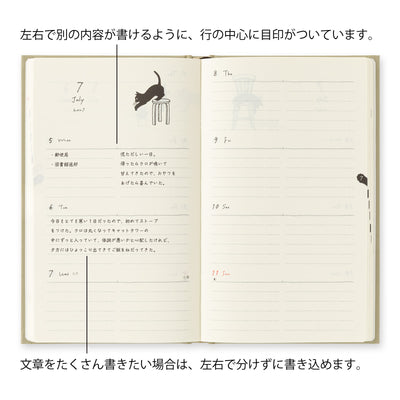 左右で別の内容が書けるように、行の中心に目印がついています。
7
July
5 Mon
・郵便局
・図書館返却
慌ただしい一日。
帰ったらクロが鳴いて
甘えてきたので、おやつを
あげたら喜んでいた。
6 Tue
今日はとても寒い1日だったので、初めてストーブ
をつけた。クロは丸くなってキャットタワーの
中にずっと入っていて、体調が悪いかと心配したけれど、
夕方にはひょっこり出てきてご飯をねだってきた。
7 Wed
8 Thu
9 Fri
10 Sat
11 Sun
7
文章をたくさん書きたい場合は、左右で分けずに書き込めます。